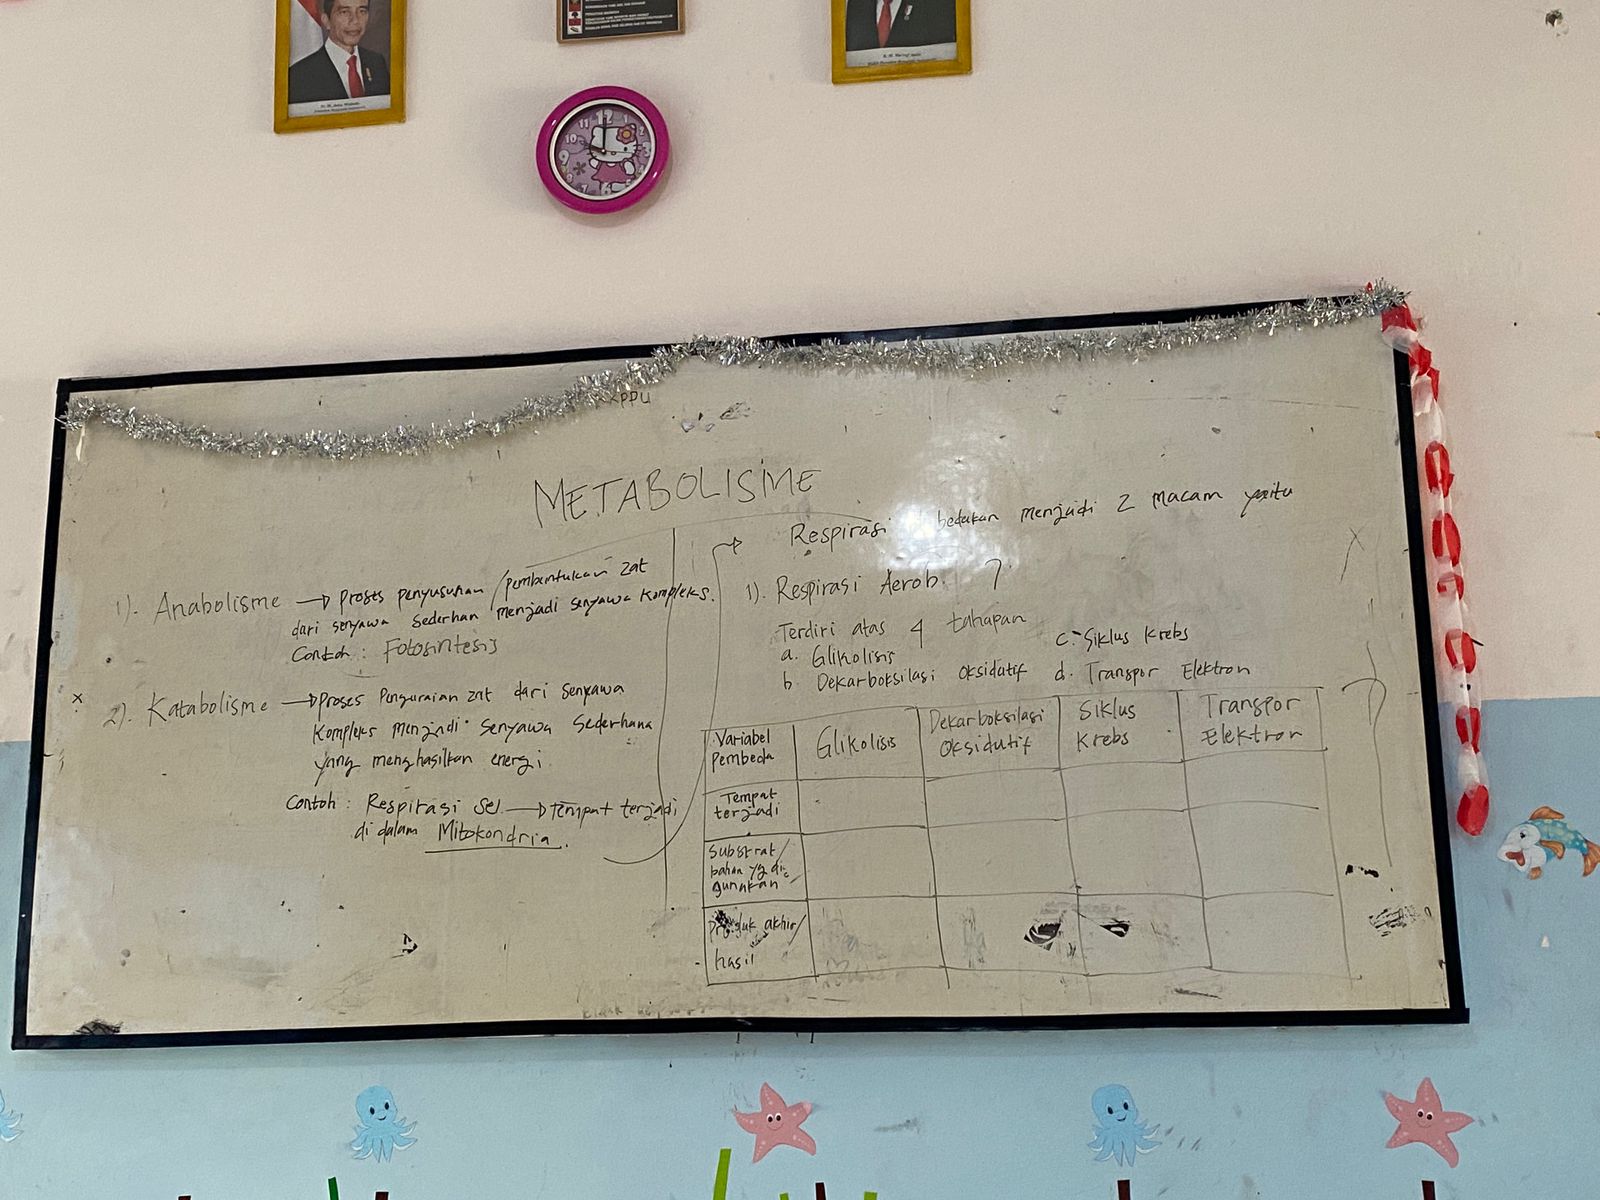 XPPU
METABOLISME
1). Anabolisme → proses penyusunan / pembentukan zat
dari senyawa sederhan menjadi senyawa kompleks.
Contoh : Fotosintesis
2). Katabolisme → proses Penguraian zat dari senyawa
kompleks menjadi senyawa sederhana
yang menghasilkan energi.
Contoh : Respirasi sel → tempat terjadi
di dalam Mitokondria.
→ Respirasi bedakan menjadi 2 macam yaitu
1). Respirasi Aerob
Terdiri atas 4 tahapan
a. Glikolisis
b. Dekarboksilasi Oksidatif
c. Siklus Krebs
d. Transpor Elektron
Variabel
Pembeda
Glikolisis
Dekarboksilasi
Oksidutif
Siklus
Krebs
Transpor
Elektron
Tempat
terjadi
Substrat/
bahan yg di
gunakan
Produk akhir/
hasil
11 12 1
10 2
9
7 6